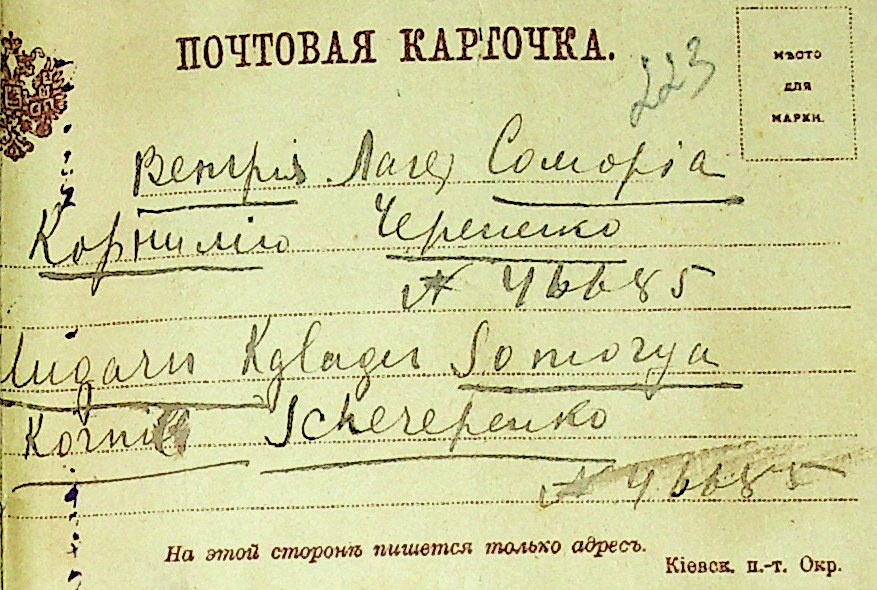 ПОЧТОВАЯ КАРТОЧКА.
223
МѢСТО
ДЛЯ
МАРКИ.
Венгрия Лагер Соморіа
Корнилію Черепенко
№ 46685
Ungarn Kglager Somorya
Kornil Scherepenko
№ 46685
На этой сторонѣ пишется только адресъ.
Кіевск. п.-т. Окр.